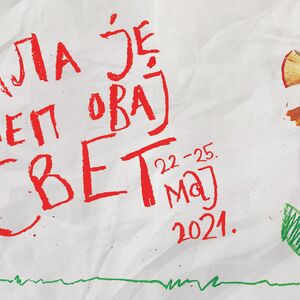 АЛА ЈЕ
ЛЕП ОВАЈ
СВЕТ
22-25.
МАЈ
2021.